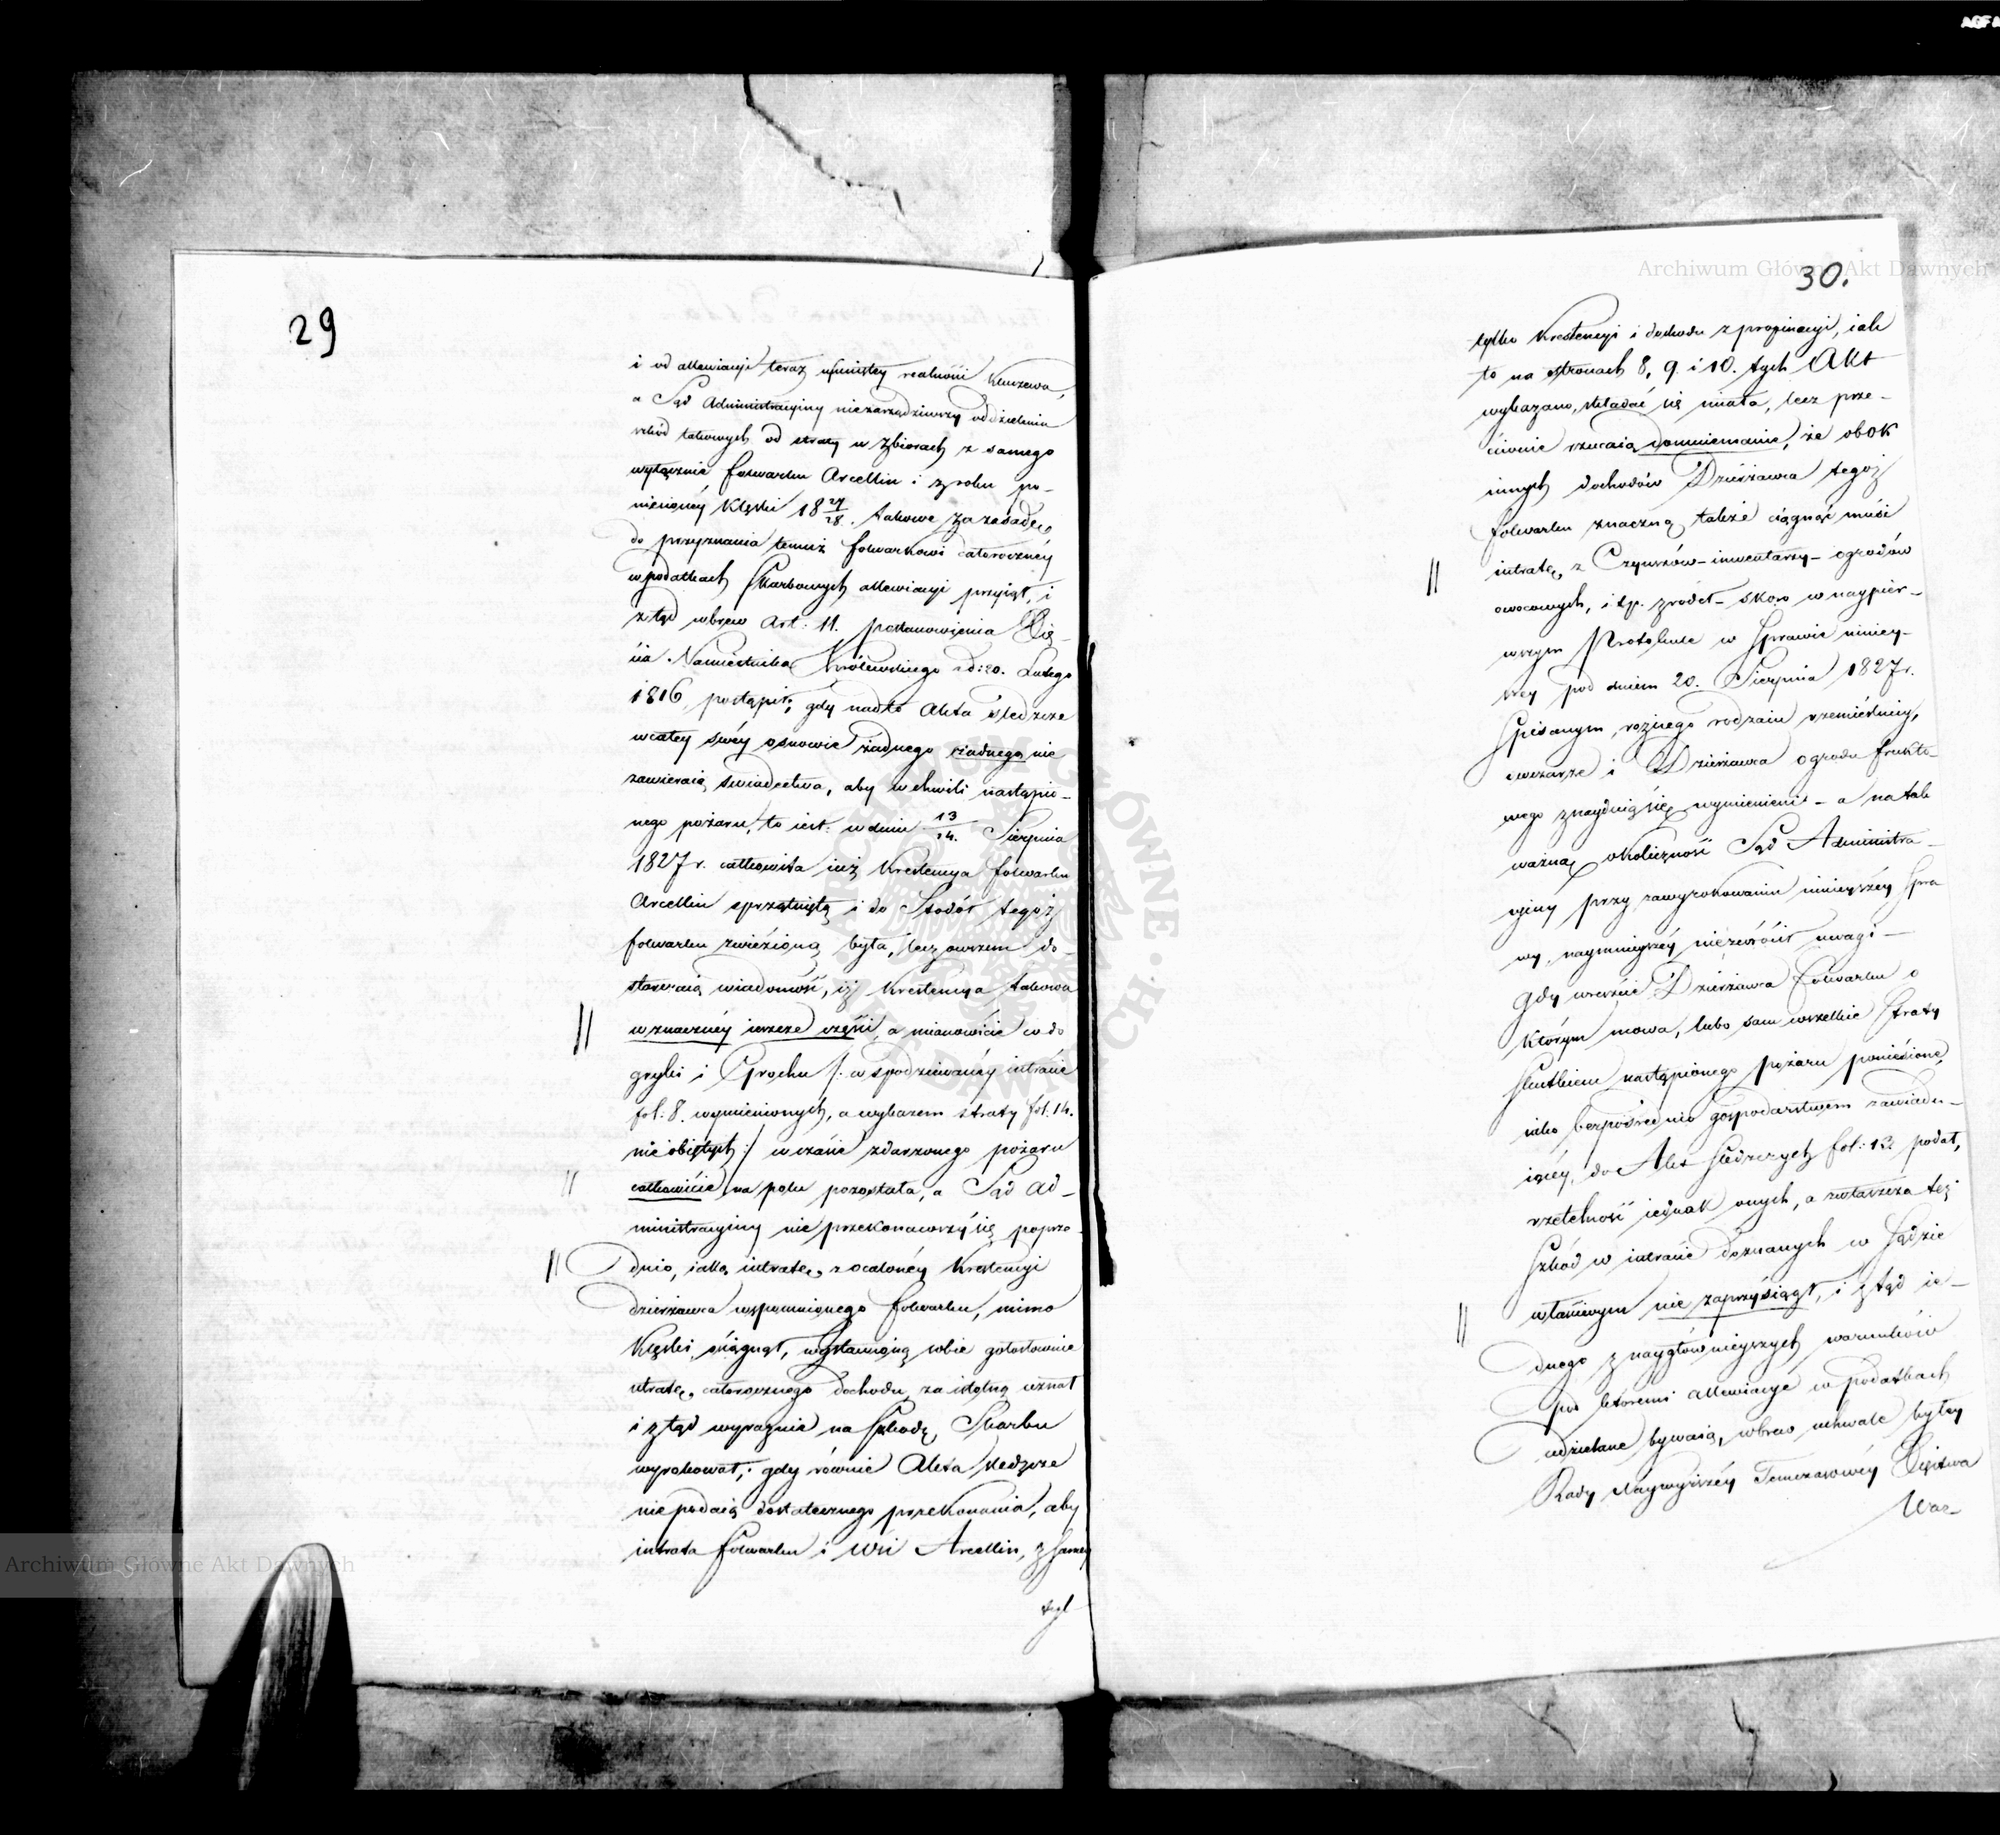 29
i od allewiacji teraz
a Sąd Administracyjny niezarządziwszy oddzielenia
szkód takowych od straty w zbiorach z samego
wyłącznie folwarku Arcellin i z roku po-
nieśionéy Klęski 18 27/28. takowe za zasadę
do przyznania temuż folwarkowi całorocznéy
w podatkach Skarbowych allewiacyi przyiął, i
ztąd wbrew Art: 11. postanowienia Xię-
cia Namiestnika Królewskiego z d: 20. Lutego
1816 postąpił; gdy nadto Akta śledcze
w całey swéy osnowie żadnego żadnego nie
zawieraią swiadectwa, aby w chwili nastąpio-
nego pożaru, to iest: w dniu 13/14. Sierpnia
1827 r. całkowita iuż Krestencya folwarku
Arcellin sprzątniętą i do Stodół tegoż
folwarku zwiezioną była, lecz owszem do-
starczaią wiadomość, iż Krestencya takowa
w znacznéy ieszcze części, a mianowicie co do
gryki i Grochu /: w spodziewanéy intracie
fol: 8. wymienionych, a wykazem straty fol: 14.
nie obiętych :/ w czasie zdarzonego pożaru
całkowicie na polu pozostała, a Sąd Ad-
ministracyiny nie przekonawszy się poprze-
dnio, iaką intratę z ocalonéy Krestencyi
dzierżawca wspomnionego folwarku, mimo
Klęski, ściągnął, wystawioną sobie gołosłownie
utratę całorocznego dochodu za istotną uznał
i ztąd wyraznie na Szkodę Skarbu
wyrokował; gdy równie Akta śledcze
nie podaią dostatecznego przekonania, aby
intrata folwarku i Wsi Arcellin, z samey
tyl-
30.
tylko Krestencyi i dochodu z propinacyi, iak
to na stronach 8, 9 i 10. tych Akt
wykazano, składać się miała, lecz prze-
ciwnie rzucaią domniemanie, że obok
innych dochodów Dzierżawca tegoż
folwarku znaczną także ciągnąć musi
intratę z Czynszów - inwentarzy - ogrodów
owocowych, i tp. zródeł - skoro w naypier-
wszym Protokule w Sprawie niniey-
szey pod dniem 20. Sierpnia 1827 r.
Spisanym, rożnego rodzaiu rzemieślnicy,
owczarze i Dzierżawca ogrodu frukto-
wego znayduią się wymienieni - a na tak
ważną okoliczność Sąd Administra-
cyiny przy zawyrokowaniu ninieyszéy Spra-
wy, naymnieyszéy niezwrócił uwagi -
gdy wreszcie Dzierżawca folwarku o
którym mowa, lubo sam wszelkie Straty
Skutkiem nastąpionego pożaru poniesione,
iako bezpośrednio gospodarstwem zawiadu-
iący, do Akt śledczych fol: 13 podał,
rzetelność iednak onych, a zwłaszcza też
Szkód w intracie doznanych w Sądzie
właściwym nie zaprzysiągł, i ztąd ie-
dnego z naygłównieyszych warunków
pod któremi allewiacye w podatkach
udzielane bywaią, wbrew uchwale byłey
Rady Naywyższéy Tymczasowéy Xięstwa
War-
Archiwum Główne Akt Dawnych
Archiwum Główne Akt Dawnych